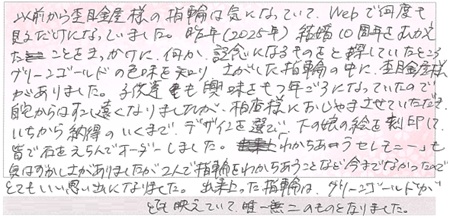 以前から杢目金屋様の指輪は気になっていて、Webで何度も
見るだけになっていました。昨年(2025年)結婚10周年をむかえ
たことをきっかけに、何か、記念になるものをと探していたところ
グリーンゴールドの色味を知り、さがした指輪の中に、杢目金屋様
がありました。子供達も興味をもつ年ごろになっていたので
自宅からはすこし遠くなりましたが、柏店様におじゃまさせていただき、
いちから納得のいくまで、デザインを選び、下の娘の絵を刻印して、
皆で石をえらんでオーダーしました。わかちあうセレモニーも
気はずかしさがありましたが2人で指輪をわかちあうことなど今までなかったので
とてもいい思い出になりました。出来上った指輪は、グリーンゴールドが
とても映えていて、唯一無二のものとなりました。